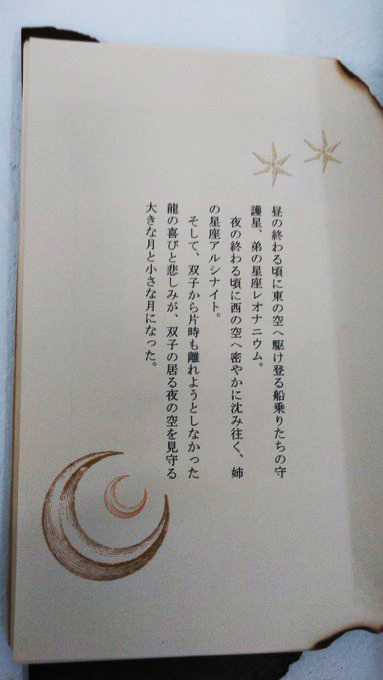 昼の終わる頃に東の空へ駆け登る船乗りたちの守
護星、弟の星座レオナニウム。
夜の終わる頃に西の空へ密やかに沈み往く、姉
の星座アルシナイト。
そして、双子から片時も離れようとしなかった
龍の喜びと悲しみが、双子の居る夜の空を見守る
大きな月と小さな月になった。